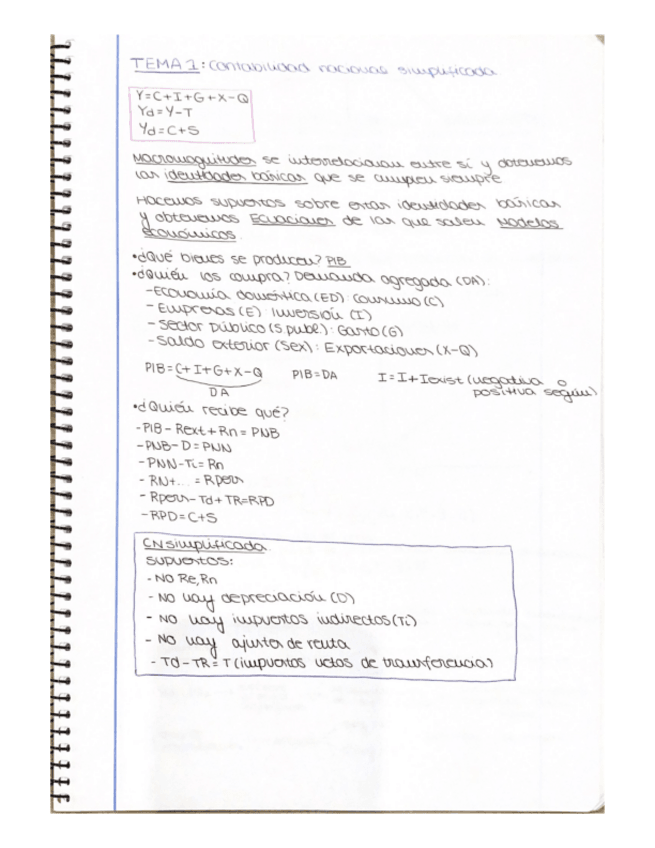 TEMA 1: contabilidad nacional simplificada
Y=C+I+G+X-Q
Yd=Y-T
Yd=C+S
Macromagnitudes se interrelacionan entre sí y obtenemos
las identidades básicas que se cumplen siempre
Hacemos supuestos sobre estas identidades básicas
y obtenemos Ecuaciones de las que salen Modelos
económicos.
•¿Qué bienes se producen? PIB
•¿Quién los compra? Demanda agregada (DA):
-Economía doméstica (ED): Consumo (C)
-Empresas (E) Inversión (I)
-Sector Público (S publ.): Gasto (G)
-Saldo exterior (Sex): Exportaciones (X-Q)
PIB=C+I+G+X-Q PIB=DA I=I+Iexist (negativa o
DA positiva según)
•¿Quién recibe qué?
-PIB-Rext+Rn=PNB
-PNB-D=PNN
-PNN-Ti=Rn
-RN+...=Rpers
-Rpers-Td+TR=RPD
-RPD=C+S
CN simplificada
supuestos:
-NO Re,Rn
-NO hay depreciación (D)
-NO hay impuestos indirectos (Ti)
-NO hay ajustes de renta
-Td-TR=T (impuestos netos de transferencia)